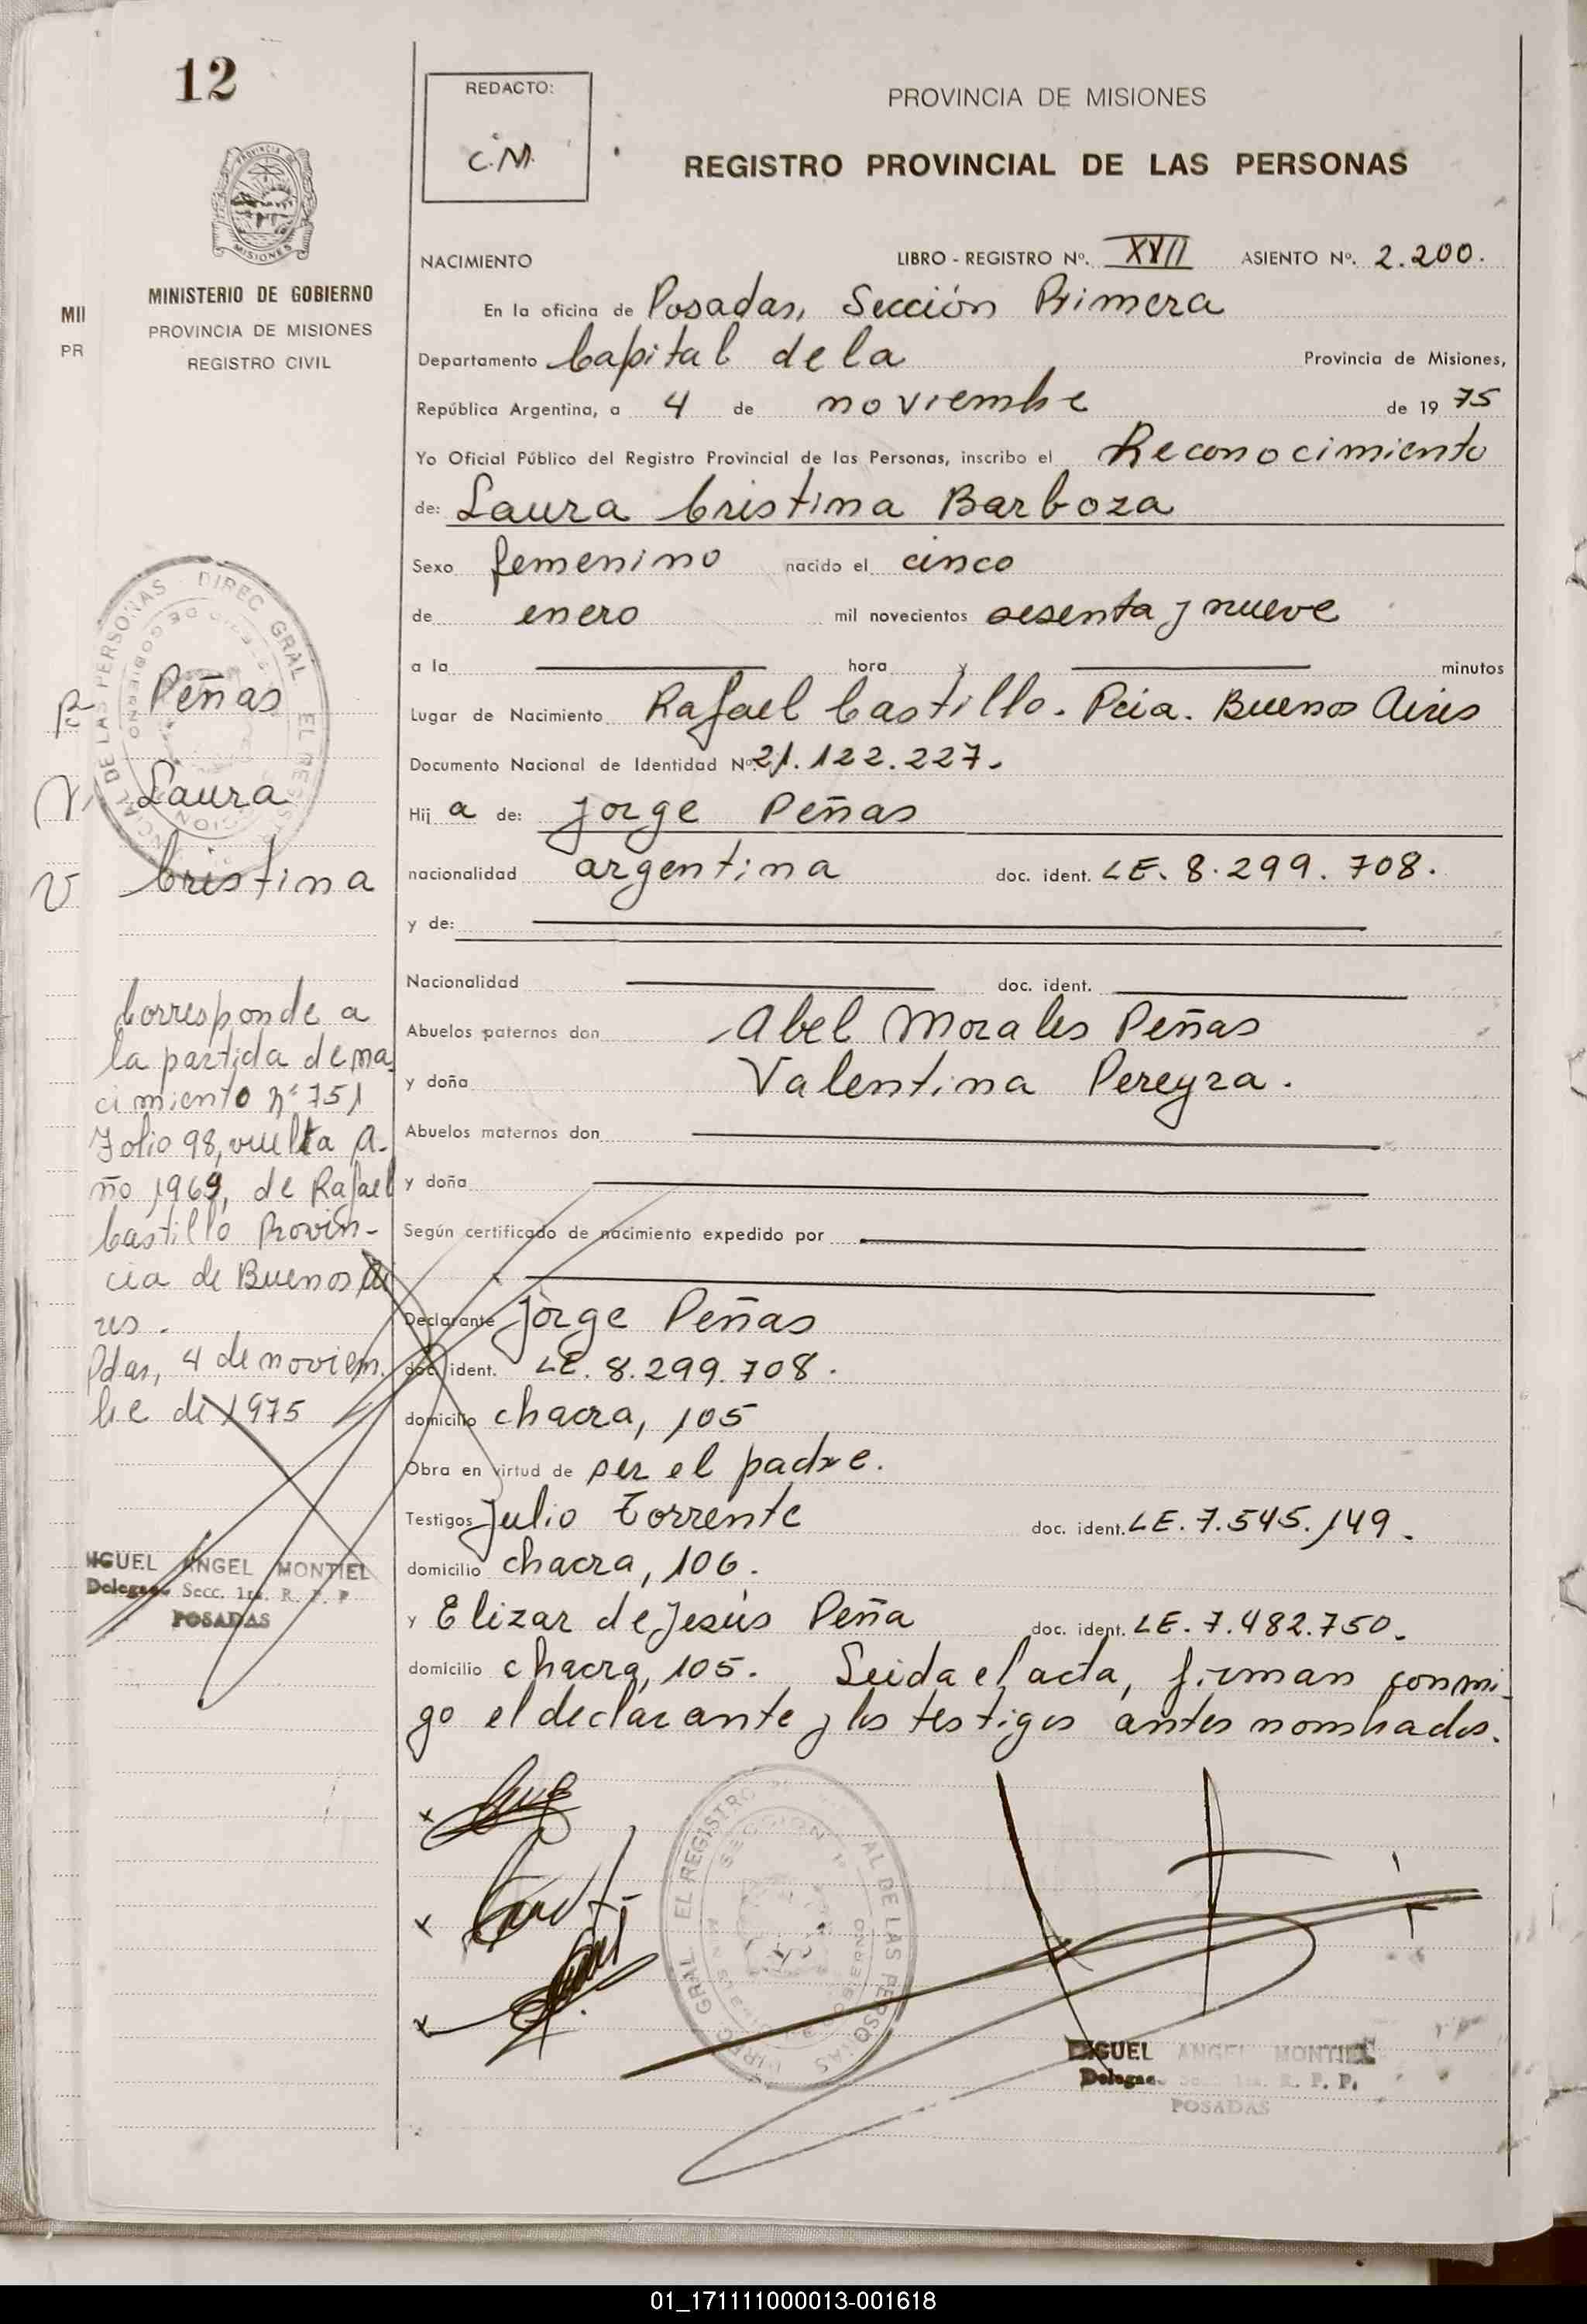 12
MINISTERIO DE GOBIERNO
PROVINCIA DE MISIONES
REGISTRO CIVIL
MII
PR
Peñas
Laura
Cristina
Corresponde a
la partida de na
cimiento nº 751
Folio 98, vuelta A-
ño 1969, de Rafael
Castillo Provin-
cia de Buenos Ai
res.
Pdas, 4 de noviem
bre de 1975
MIGUEL ANGEL MONTIEL
Delegado Secc. 1ra. R. P. P
POSADAS
REDACTO:
C.M.
PROVINCIA DE MISIONES
REGISTRO PROVINCIAL DE LAS PERSONAS
NACIMIENTO LIBRO - REGISTRO Nº. XVII ASIENTO Nº. 2.200.
En la oficina de Posadas, Sección Primera
Departamento Capital de la Provincia de Misiones,
República Argentina, a 4 de noviembre de 19 75
Yo Oficial Público del Registro Provincial de las Personas, inscribo el Reconocimiento
de: Laura Cristina Barboza
Sexo femenino nacido el cinco
de enero mil novecientos sesenta y nueve
a la hora y minutos
Lugar de Nacimiento Rafael Castillo. Pcia. Buenos Aires
Documento Nacional de Identidad Nº 21.122.227.
Hij a de: Jorge Peñas
nacionalidad argentina doc. ident. LE. 8.299.708.
y de:
Nacionalidad doc. ident.
Abuelos paternos don Abel Morales Peñas
y doña Valentina Pereyra.
Abuelos maternos don
y doña
Según certificado de nacimiento expedido por
Declarante Jorge Peñas
doc. ident. LE. 8.299.708.
domicilio chacra, 105
Obra en virtud de ser el padre.
Testigos Julio Torrente doc. ident. LE. 7.545.149.
domicilio chacra, 106.
y Elizar de Jesús Peña doc. ident. LE. 7.482.750.
domicilio chacra, 105. Leida el acta, firman conmi-
go el declarante y los testigos antes nombrados.
MIGUEL ANGEL MONTIEL
Delegado Secc. 1ra. R. P. P.
POSADAS
01_171111000013-001618